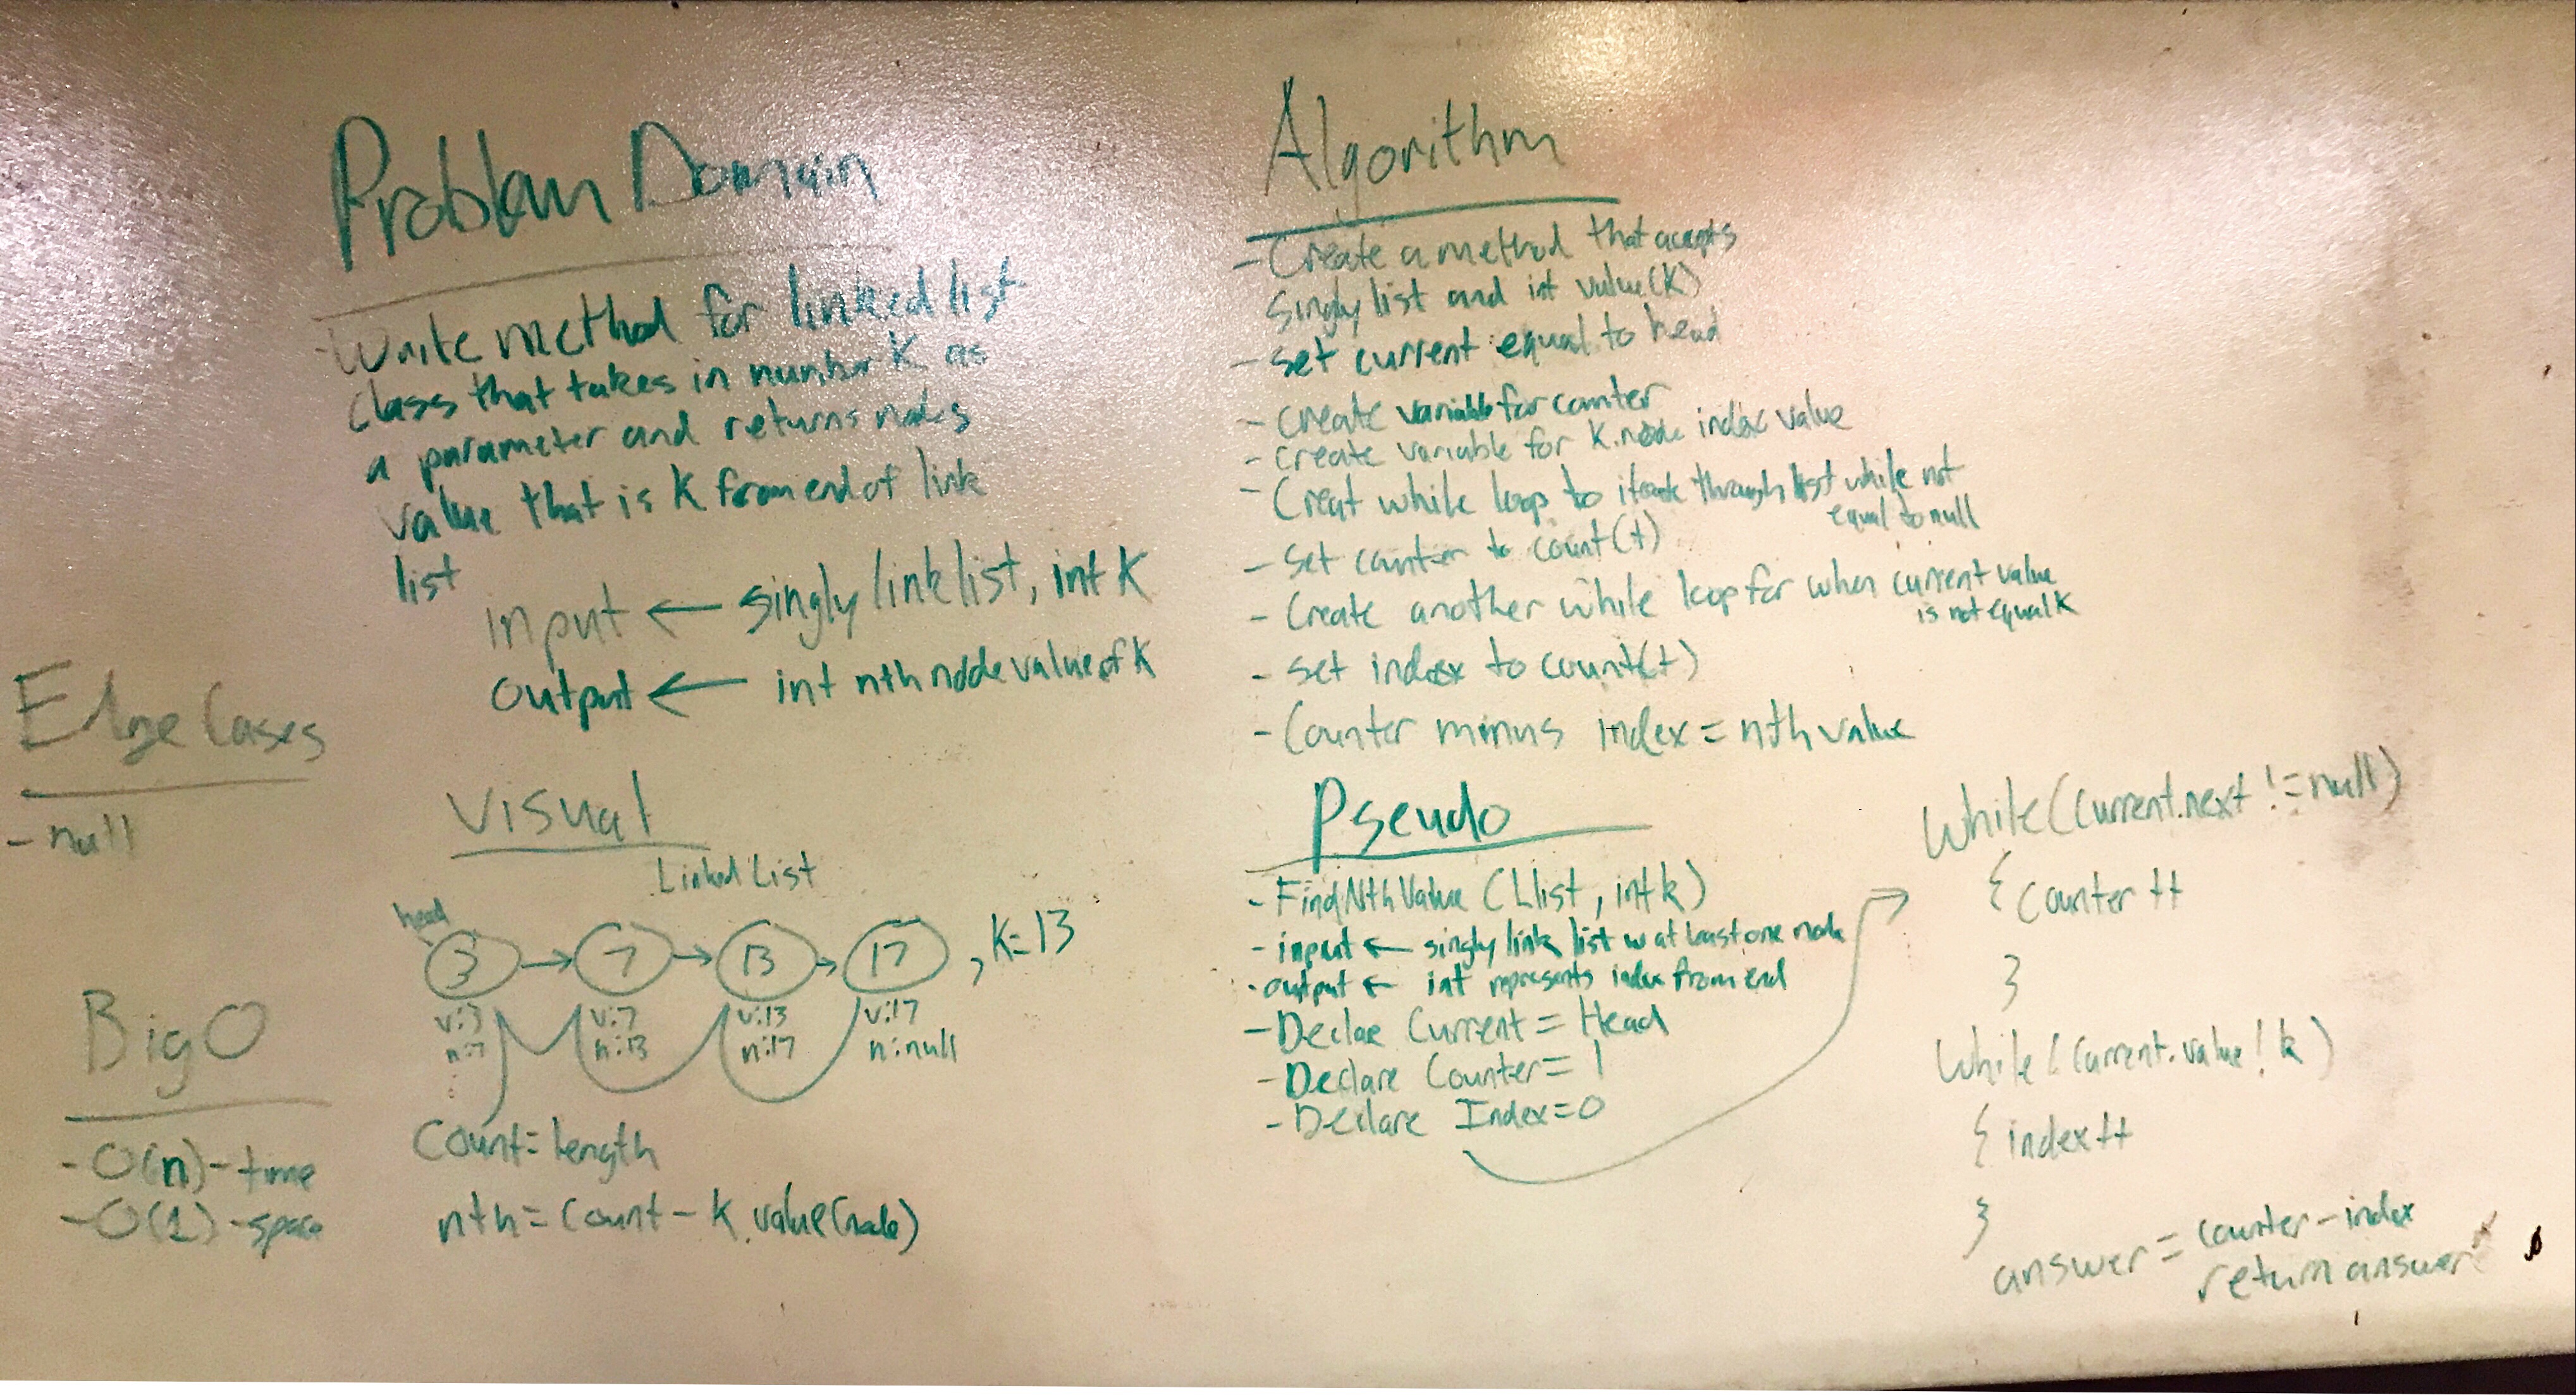 Problem Domain
- Write method for linked list
class that takes in number K as
a parameter and returns nodes
value that is K from end of link
list
input ← singly link list, int K
output ← int nth node value of K
Edge Cases
- null
Big O
- O(n) - time
- O(1) - space
Visual
Linked List
head
3 → 7 → 13 → 17 , K=13
v:3 v:7 v:13 v:17
n:7 n:13 n:17 n:null
Count = length
nth = Count - K.value(node)
Algorithm
- Create a method that accepts
singly list and int value(K)
- set current equal to head
- create variable for counter
- create variable for K.node index value
- Creat while loop to iterate through list while not
equal to null
- set counter to count(+)
- Create another while loop for when current value
is not equal K
- set index to count(+)
- Counter minus index = nth value
Pseudo
- FindNthValue (LList, int k)
- input ← singly link list w at least one node
- output ← int represents index from end
- Declare Current = Head
- Declare Counter = 1
- Declare Index = 0
While (Current.next != null)
{ Counter ++
}
While (Current.value ! k)
{ index ++
}
answer = counter - index
return answer